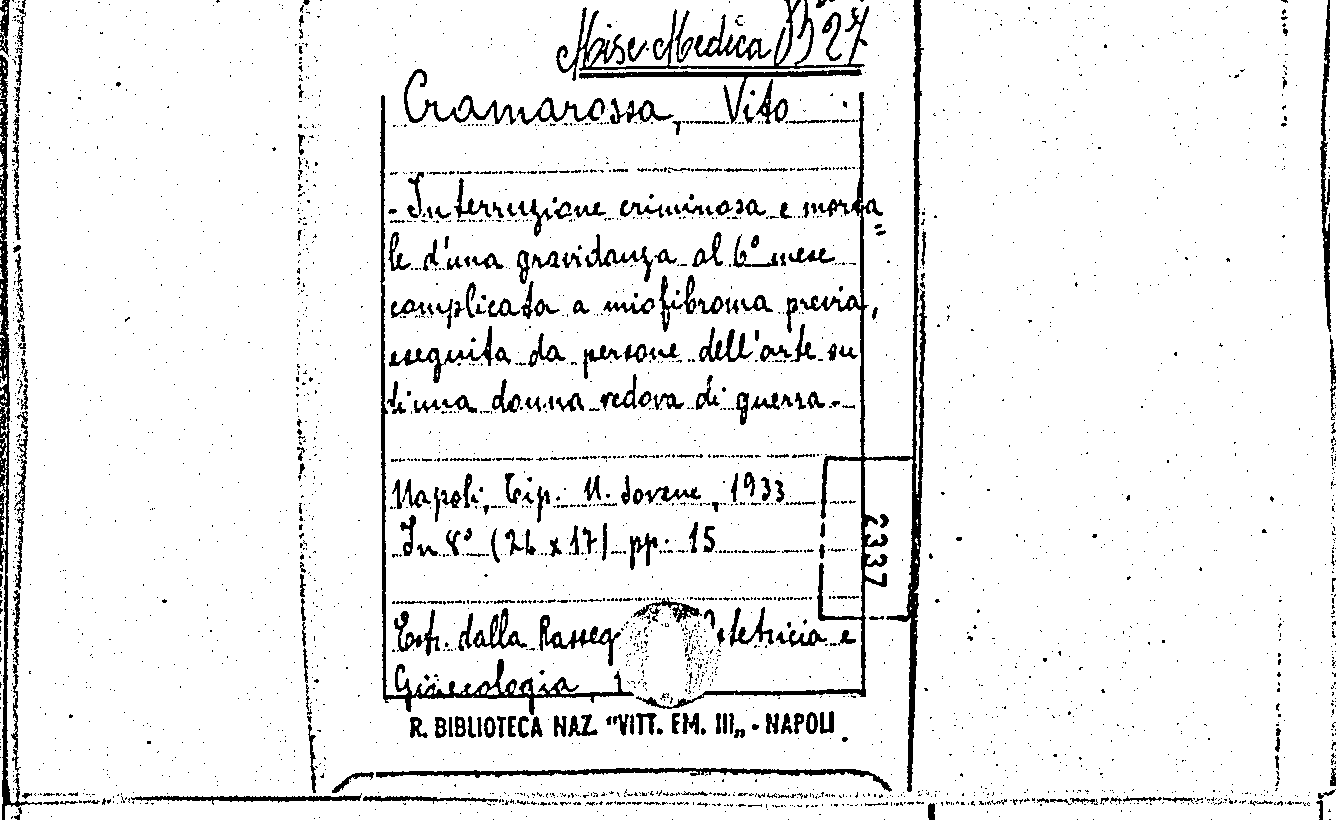 Misc. Medica B 27
Cramarossa, Vito
- Interruzione criminosa e morta
le d'una gravidanza al 6° mese
complicata a miofibroma previa,
eseguita da persone dell'arte su
di una donna vedova di guerra.-
Napoli, Tip. N. Jovene, 1933
In 8° (26 x 17) pp. 15
Estr. dalla Rasseg stetricia e
Ginecologia, 1
2337
R. BIBLIOTECA NAZ. "VITT. EM. III„ - NAPOLI